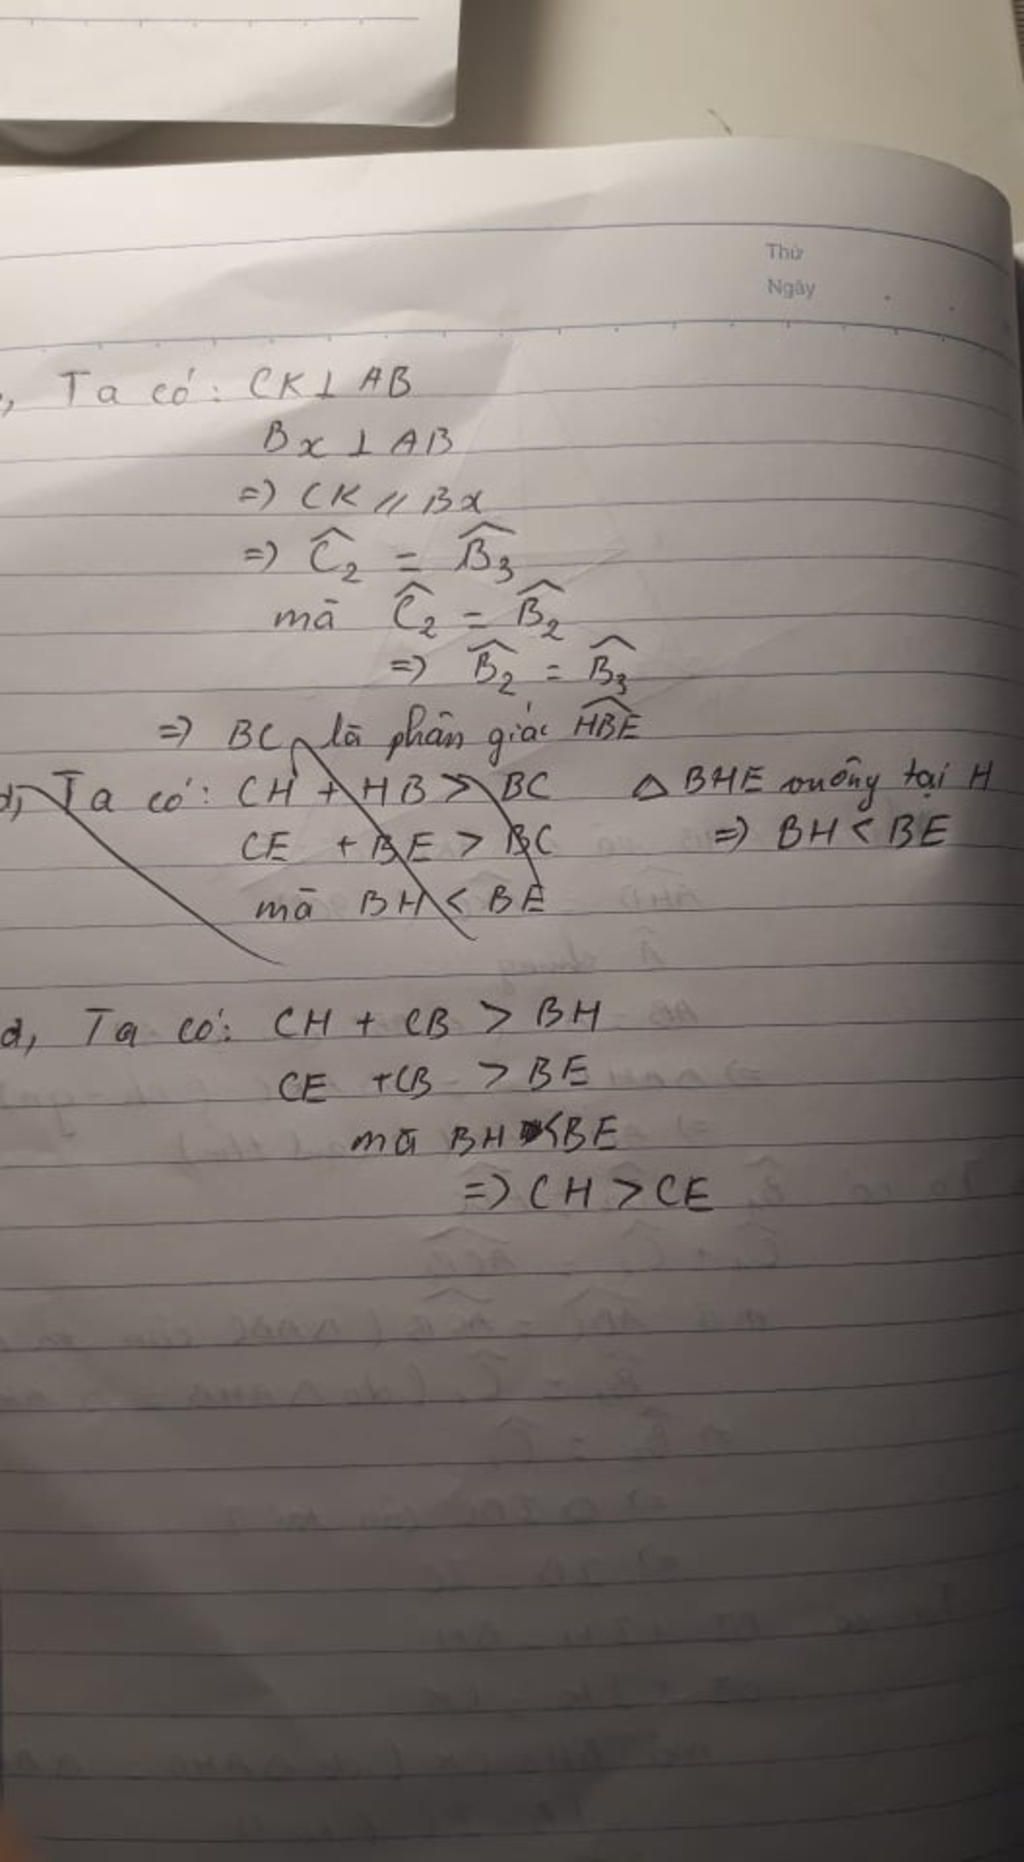 Thứ
Ngày
, Ta có: CK ⊥ AB
Bx ⊥ AB
=> CK // Bx
=> Ĉ₂ = B̂₃
mà Ĉ₂ = B̂₂
=> B̂₂ = B̂₃
=> BC là phân giác HBE
d, Ta có: CH + HB > BC △ BHE vuông tại H
CE + BE > BC => BH < BE
mà BH < BE
d, Ta có: CH + CB > BH
CE + CB > BE
mà BH < BE
=> CH > CE